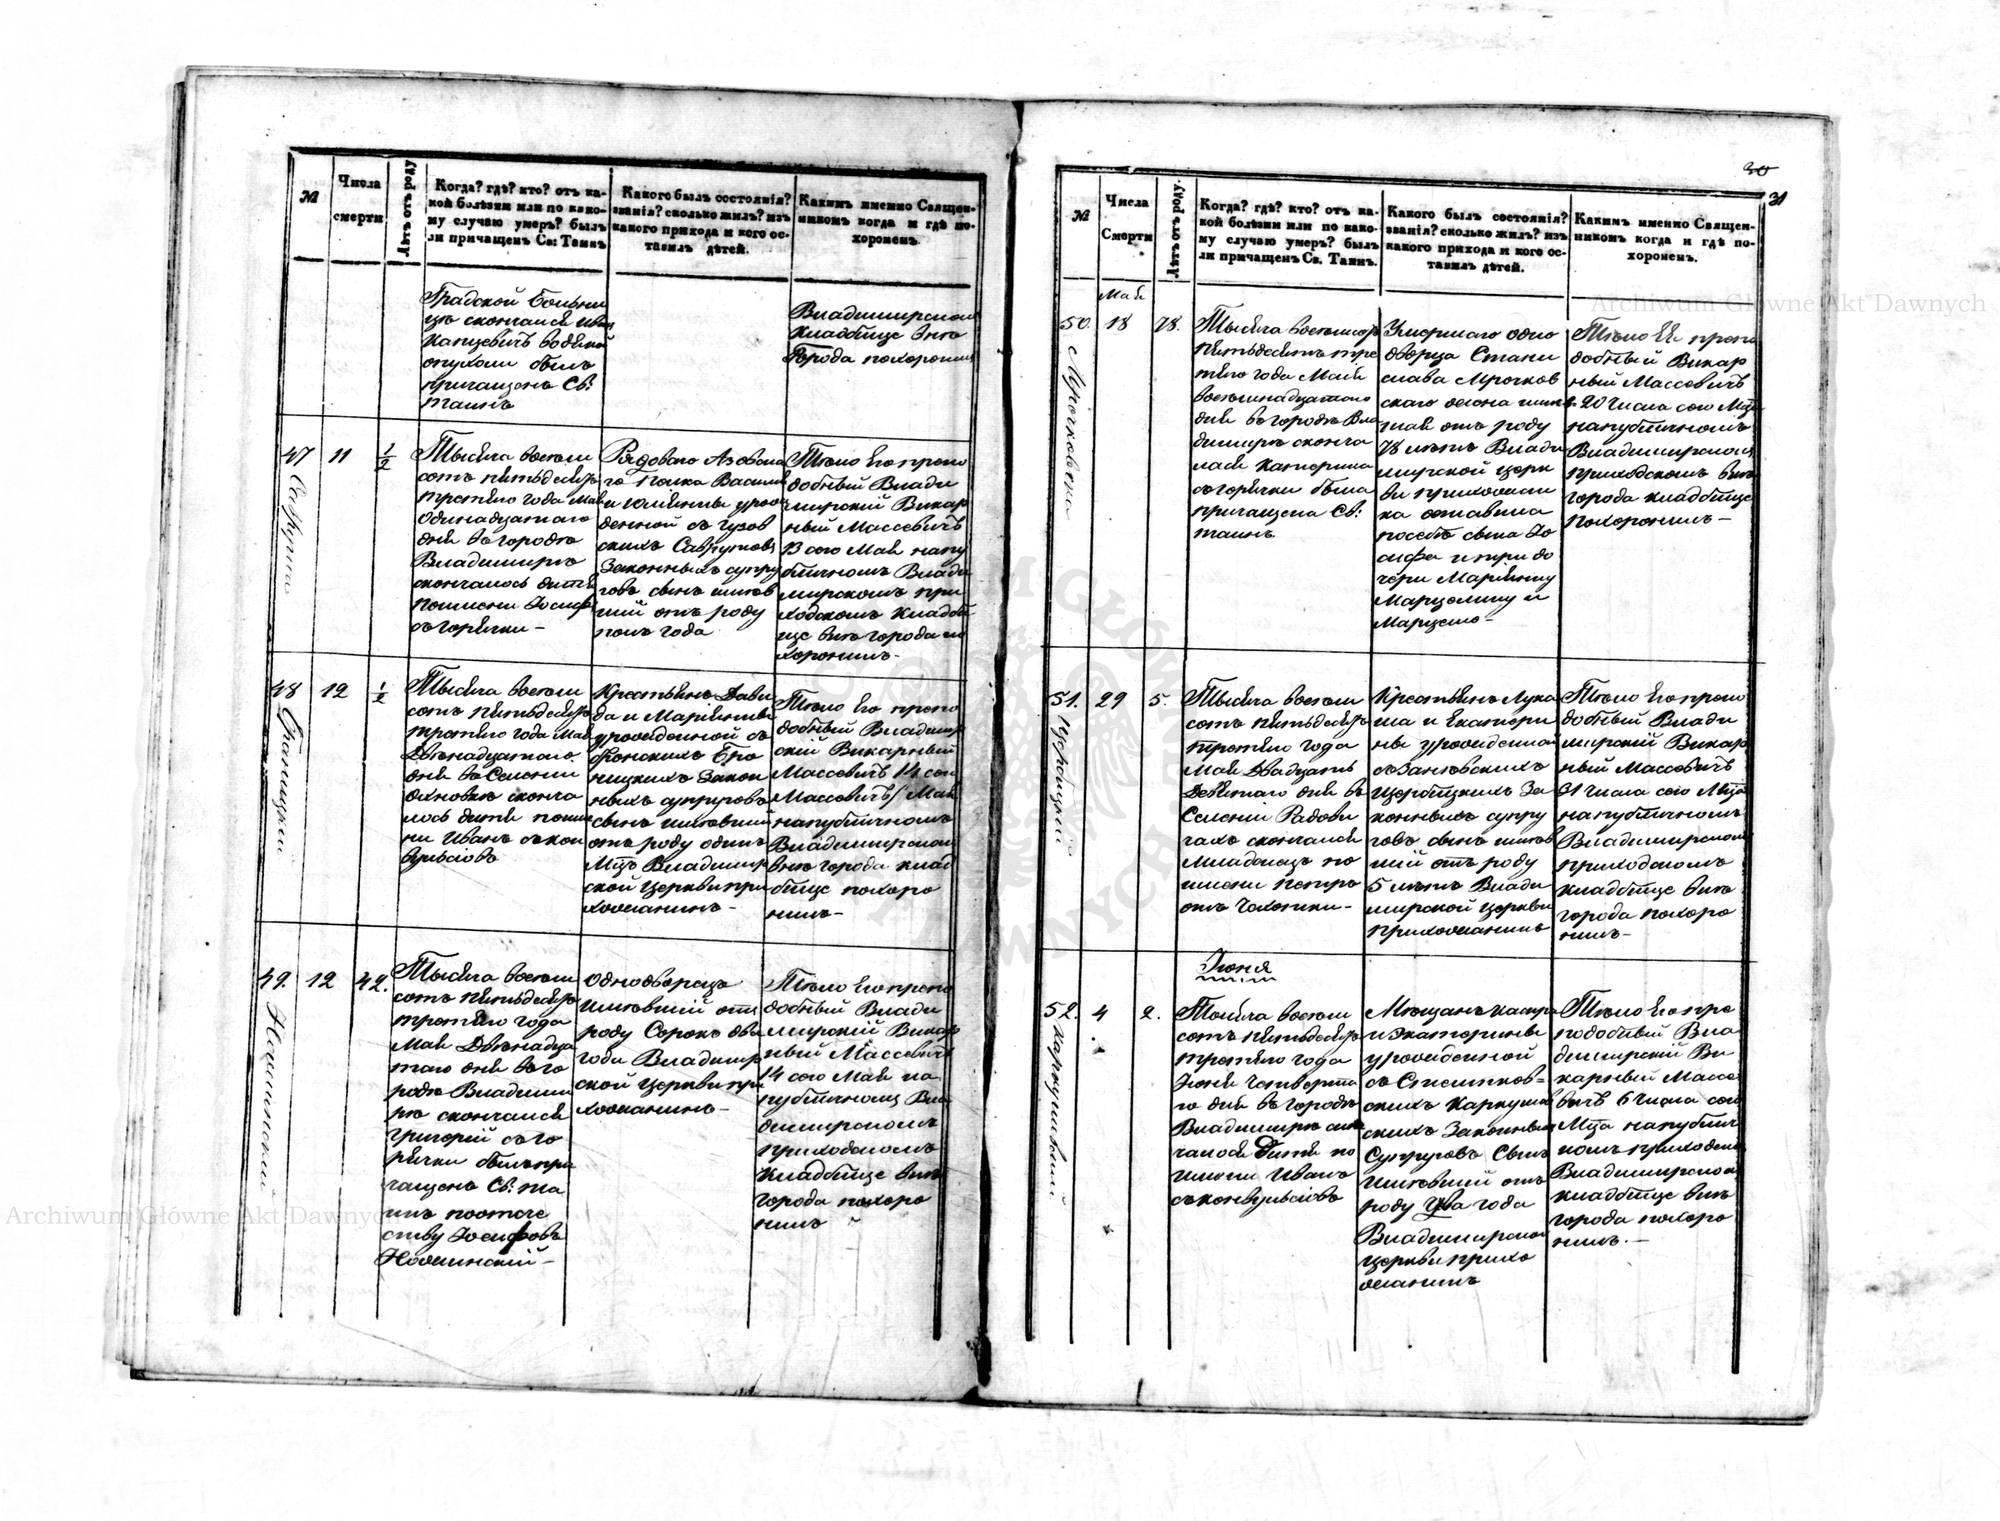 №
Числа
смерти
Лѣтъ отъ роду
Когда? гдѣ? кто? отъ ка-
кой болѣзни или по како-
му случаю умеръ? былъ
ли причащенъ Св: Таинъ
Какого былъ состоянія?
званія? сколько жилъ? изъ
какого прихода и кого ос-
тавилъ дѣтей.
Какимъ именно Священ-
никомъ когда и гдѣ по-
хороненъ.
Градской больни
цѣ скончался
водяной
опухоли былъ
причащенъ Св:
таинъ
Владимирском
кладбище внѣ
города похоронил
47
11
1/2
Тысяча восемь
сотъ пятьдесятъ
третяго года Мая
Одинадцатаго
дня въ городѣ
Владимирѣ
скончалось дитя
по имени Іосифъ
съ горячки –
Рядоваго Азовска
го полка Василія
и Юліянны урож
денной съ
законныхъ супру
говъ сынъ имѣв
шій отъ роду
полъ года
Тѣло Его препо
добный Влади
мирскій Викар
ный Массевичъ
13 сего Мая на пу
бличномъ Влади
мирскомъ при
ходскомъ кладб
ще внѣ города по
хоронилъ-
48
12
1/2
Тысяча восемь
сотъ пятьдесятъ
третяго года Мая
Двѣнадцатаго
дня въ Селеніи
сконча
лось дитя по име
ни Иванъ съ кон
вульсіовъ
Крестьянъ Дави
да и Маріянны
урожденной съ
законныхъ супруговъ
сынъ имѣвшій
отъ роду одинъ
Мцъ Владимир
ской церкви при
хожанинъ-
Тѣло Его препо
добный Владимир
скій Викарный
Массевичъ 14 сего
Массевичъ/ Мая
на публичномъ
Владимирском
внѣ города клад
бище похоро
нилъ-
49.
12
42.
Тысяча восемь
сотъ пятьдесятъ
третяго года
Мая Двѣнадца
таго дня въ го
родѣ Владими
рѣ скончался
Григорій съ го
рячки былъ при
чащенъ Св: та
инъ по отече
ству Іосифовъ
Однодворецъ
имѣвшій отъ
роду Сорокъ два
года Владимир
ской церкви при
хожанинъ-
Тѣло Его препо
добный Влади
мирскій Викар
ный Массевичъ
14 сего Мая на
публичномъ Вла
димирскомъ
приходскомъ
кладбище внѣ
города похоро
нилъ
30
31
№
Числа
Смерти
Лѣтъ отъ роду.
Когда? гдѣ? кто? отъ ка-
кой болѣзни или по како-
му случаю умеръ? былъ
ли причащенъ Св. Таинъ.
Какого былъ состоянія?
званія? сколько жилъ? изъ
какого прихода и кого ос-
тавилъ дѣтей.
Какимъ именно Священ-
никомъ когда и гдѣ по-
хороненъ.
Мая
50.
18
78.
Тысяча восемьсотъ
пятьдесятъ тре
тяго года Мая
восемнадцатаго
дня въ городѣ Вла
димирѣ сконча
лася Катерина
съ горячки была
причащена Св:
таинъ
Умершаго одно
дворца Стани
слава Мрочков
скаго жена имѣв
шая отъ роду
78 лѣтъ Влади
мирской церк
ви прихожан
ка оставила
по себѣ сына Іо
сифа и три до
чери Маріянну
Марцелину и
Тѣло Ея препо
добный Викар
ный Массевичъ
20 числа сего Мца
на публичномъ
Владимирском
приходскомъ внѣ
города кладбище
похоронилъ –
51.
29
5.
Тысяча восемь
сотъ пятьдесятъ
третяго года
Мая Двадцать
Девятаго дня въ
Селеніи Радови
чахъ скончался
младенецъ по
имени Петръ
отъ чахотки –
Крестьянъ Лука
ша и Екатери
ны урожденной
за
конныхъ супру
говъ сынъ имѣв
шій отъ роду
5 лѣтъ Влади
мирской церкви
прихожанинъ
Тѣло Его препо
добный Влади
мирскій Викар
ный Массевичъ
31 числа сего Мца
на публичномъ
Владимирском
приходскомъ
кладбище внѣ
города похоро
нилъ-
Іюня
52.
4
2.
Тысяча восемь
сотъ пятьдесятъ
третяго года
Іюня четверта
го дня въ городѣ
Владимирѣ скон
чалося Дитя по
имени Иванъ
съ конвульсіовъ
Мѣщанъ
и Екатерины
урожденной
законныхъ
Супруговъ Сынъ
имѣвшій отъ
роду Два года
Владимирской
церкви прихо
жанинъ
Тѣло Его пре
подобный Вла
димирскій Ви
карный Массе
вичъ 6 числа сего
Мца на публич
номъ приходском
Владимирском
кладбище внѣ
города похоро
нилъ. –
Archiwum Główne Akt Dawnych
Archiwum Główne Akt Dawnych